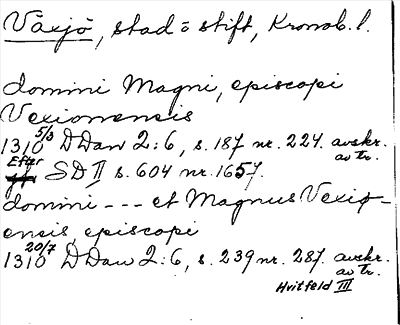 Växjö, stad o stift, Kronob. l.
domini Magni, episcopi
Vexionensis
1310 5/3 DDan 2:6, s. 187 nr. 224. avskr. av tr.
Efter SD II s. 604 nr. 1657.
domini --- et Magnus Vexio-
ensis episcopi
1310 20/7 DDan 2:6, s. 239 nr. 287. avskr. av tr.
Hvitfeld III